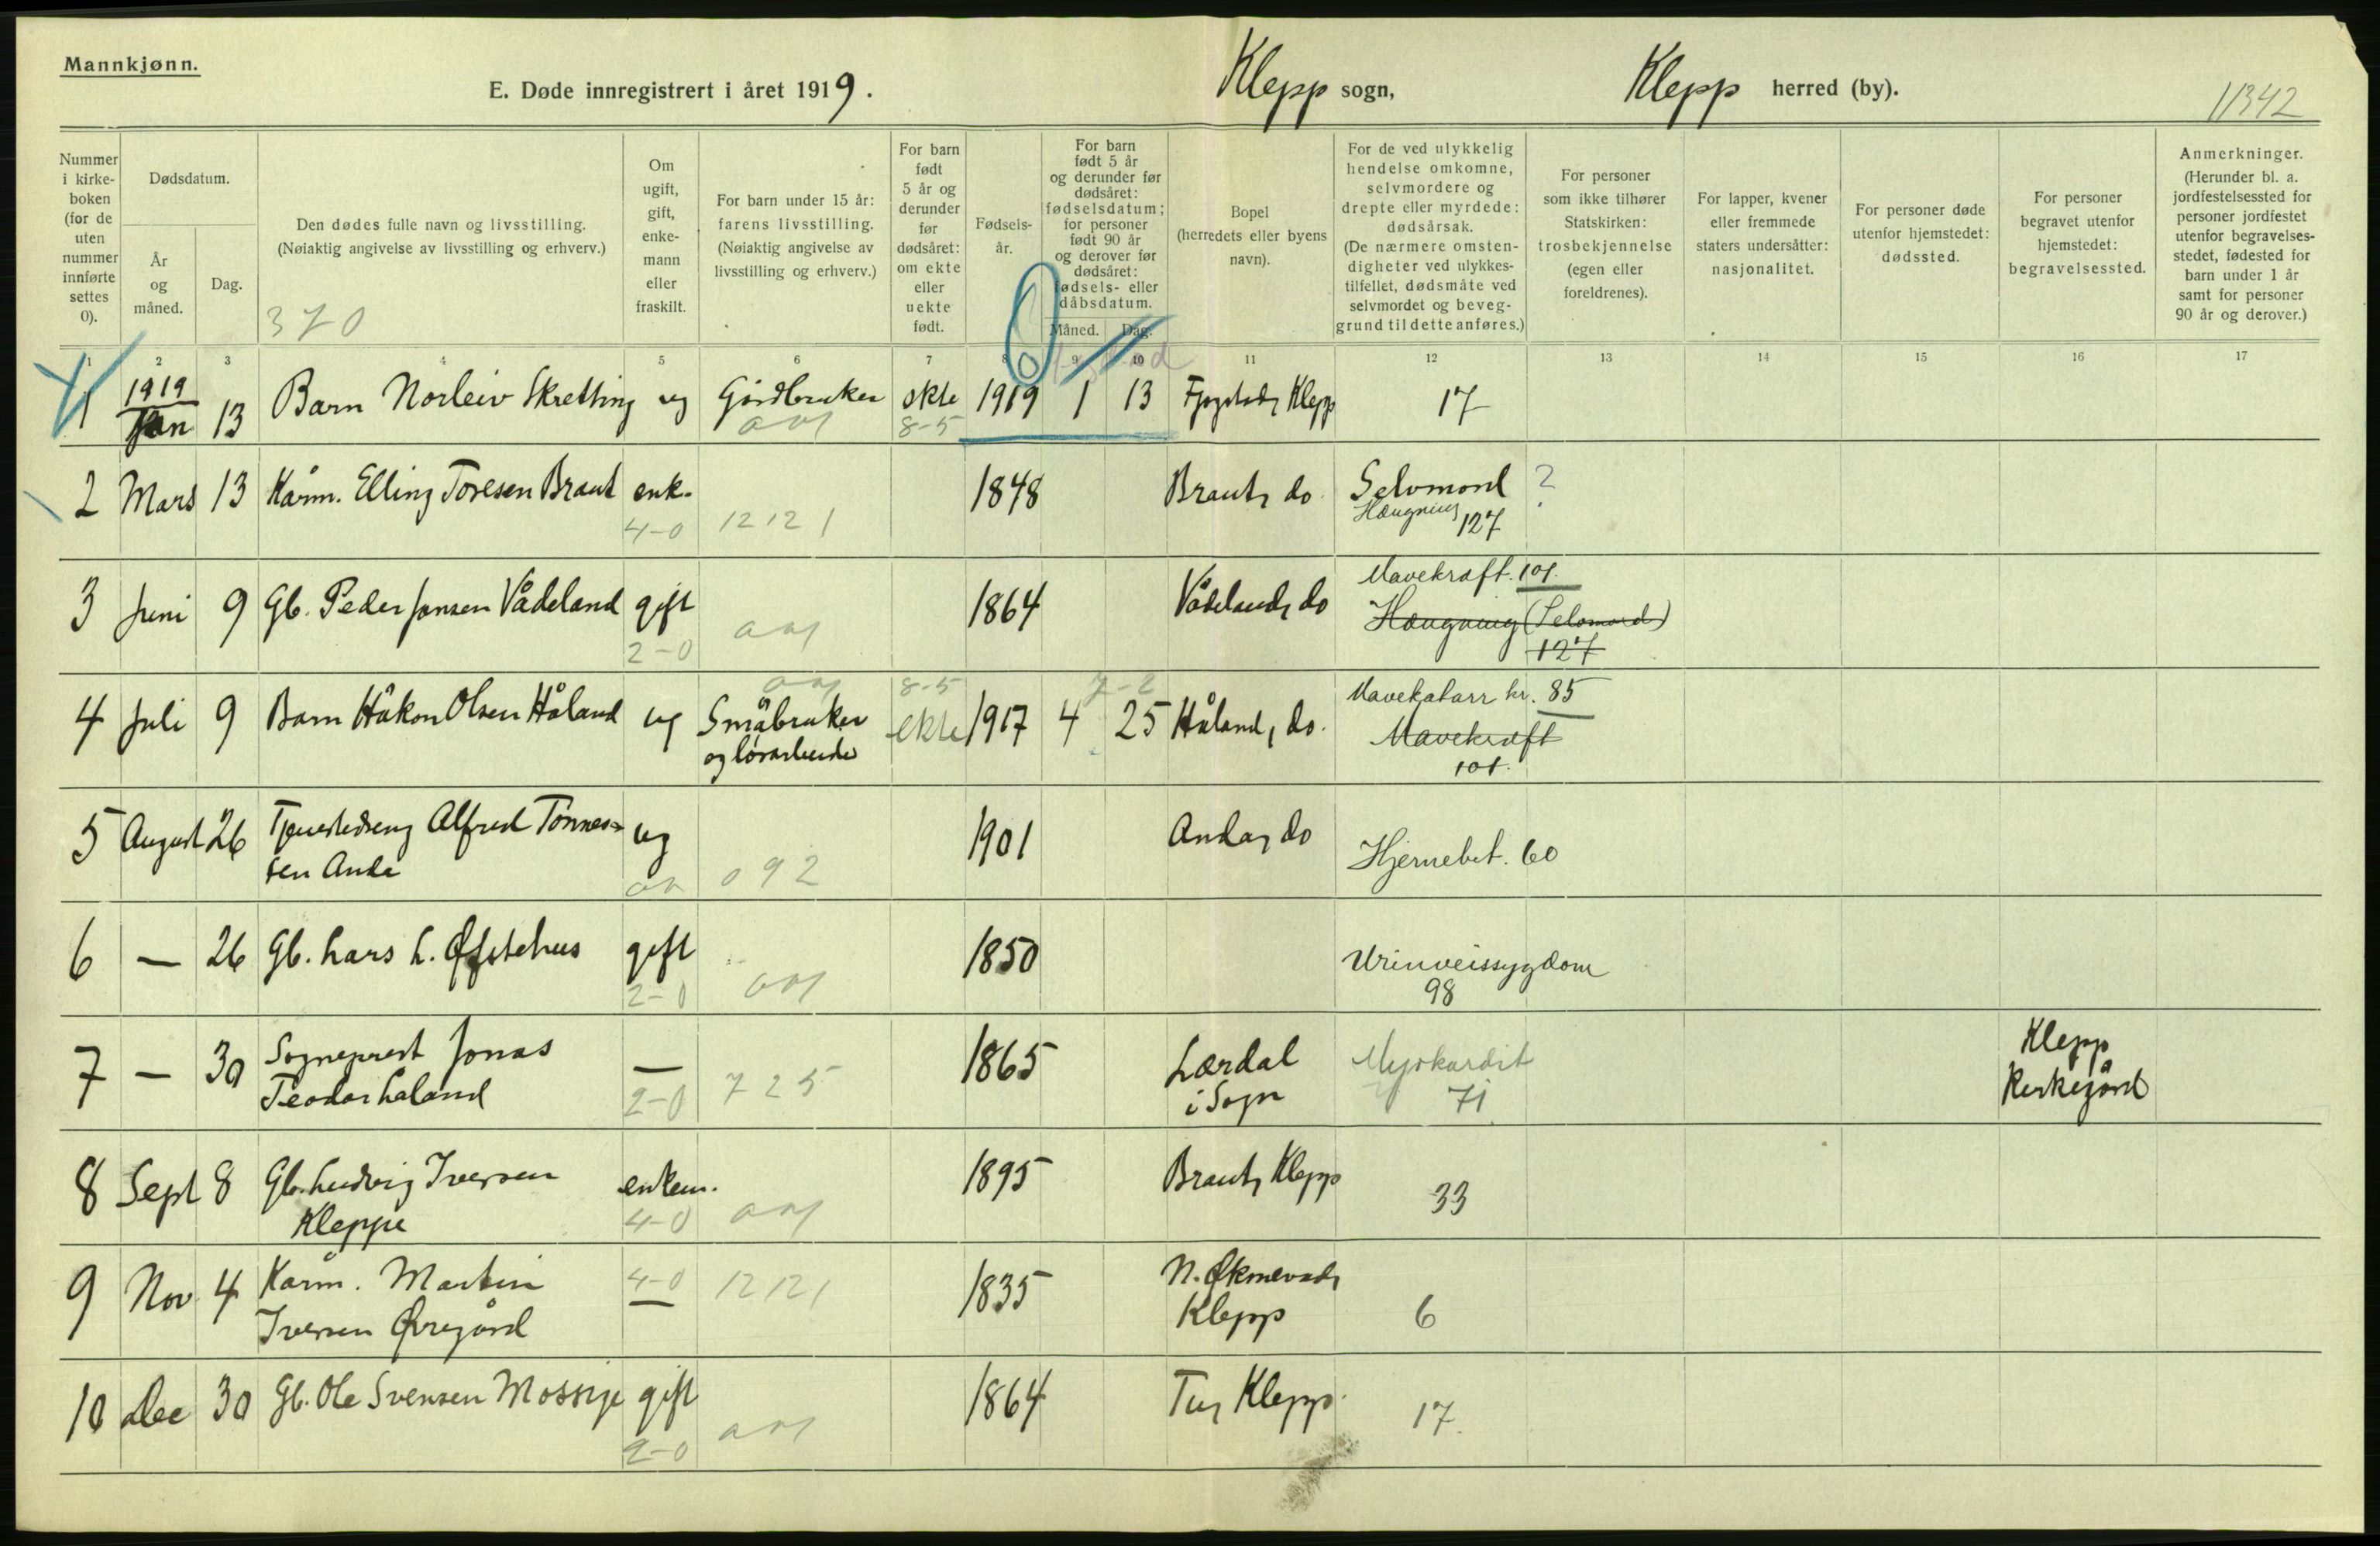 Mannkjønn.
E. Døde innregistrert i året 1919.
Klepp sogn,
Klepp herred (by).
11342
Nummer i kirke- boken (for de uten nummer innførte settes 0).
Dødsdatum.
År og måned.
Dag.
Den dødes fulle navn og livsstilling.
(Nøiaktig angivelse av livsstilling og erhverv.)
370
Om ugift, gift, enke- mann eller fraskilt.
For barn under 15 år: farens livsstilling. (Nøiaktig angivelse av livsstilling og erhverv.)
For barn født 5 år og derunder før dødsåret: om ekte eller uekte født.
Fødsels- år.
For barn født 5 år og derunder før dødsåret: fødselsdatum; for personer født 90 år og derover før dødsåret: fødsels- eller dåbsdatum.
Måned. Dag.
Bopel (herredets eller byens navn).
For de ved ulykkelig hendelse omkomne, selvmordere og drepte eller myrdede: dødsårsak. (De nærmere omsten- digheter ved ulykkes- tilfellet, dødsmåte ved selvmordet og beveg- grund til dette anføres.)
For personer som ikke tilhører Statskirken: trosbekjennelse (egen eller foreldrenes).
For lapper, kvener eller fremmede staters undersåtter: nasjonalitet.
For personer døde utenfor hjemstedet: dødssted.
For personer begravet utenfor hjemstedet: begravelsessted.
Anmerkninger. (Herunder bl. a. jordfestelsessted for personer jordfestet utenfor begravelses- stedet, fødested for barn under 1 år samt for personer 90 år og derover.)
1 2 3 4 5 6 7 8 9 10 11 12 13 14 15 16 17
1 1919 Jan 13 Barn Norleiv Skretting ug Gårdbruker ekte 1919 1 13 Klepp 17
8-5
2 Mars 13 Kårm. Elling Toresen Braut enk. 1848 Braut, do. Selvmord ?
4-0 12121 Hængning 127
3 Juni 9 Gb. Peder Jonsen Vådeland gift 1864 Vådeland, do Mavekræft. 101.
2-0 Hængning (Selvmord)
127
4 Juli 9 Barn Håkon Olsen Håland ug Småbruker ekte 1917 4 25 Håland, do. Mavekatarr kr. 85
8-5 7-2
og løsarbeider Mavekræft
101.
5 August 26 Tjenestedreng Alfred Tønnes- ug 1901 Anda, do Hjernebet. 60
sen Anda 092
6 — 26 Gb. Lars L. Øfstehus gift 1850 Urinveissygdom
2-0 98
7 — 30 Sogneprest Jonas — 1865 Lærdal Myokardit Klepp
Teodor Laland 2-0 725 i Sogn 71 Kirkegård
8 Sept 8 Gb. Ludvig Iversen enkem. 1895 Braut, Klepp 33
Kleppe 4-0
9 Nov 4 Kårm. Martin 4-0 12121 1835 Klepp 6
Iversen Øvregård —
10 Dec 30 Gb. Ole Svensen Mossige gift 1864 Tu, Klepp. 17.
2-0